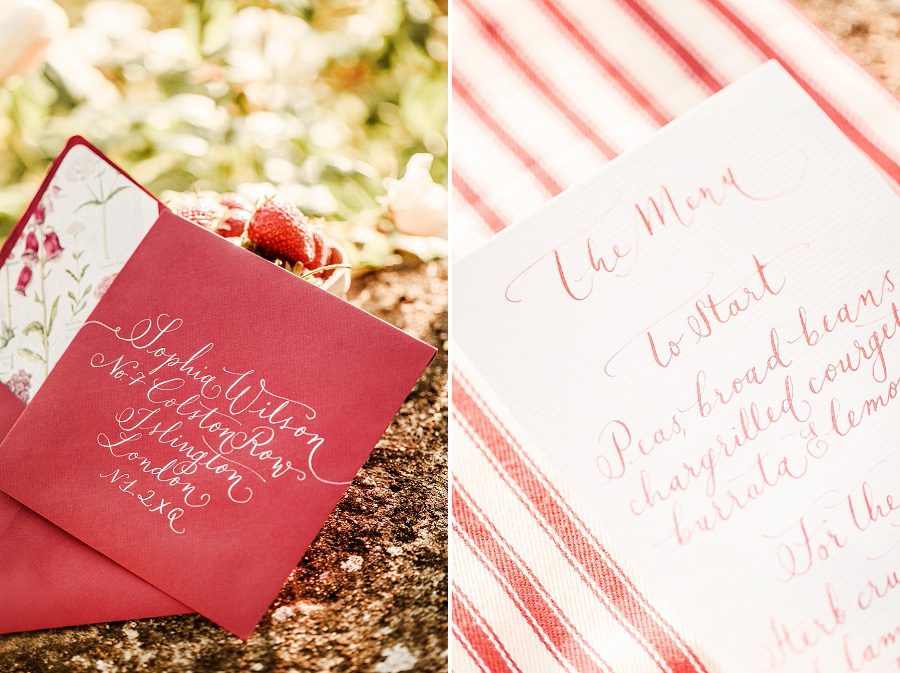 Sophia Wilson
No. 7 Colston Row
Islington
London
N1 2XQ
The Menu
To Start
Peas, broad beans
chargrilled courget
burrata & lemo
For the
Herb cru
of lam